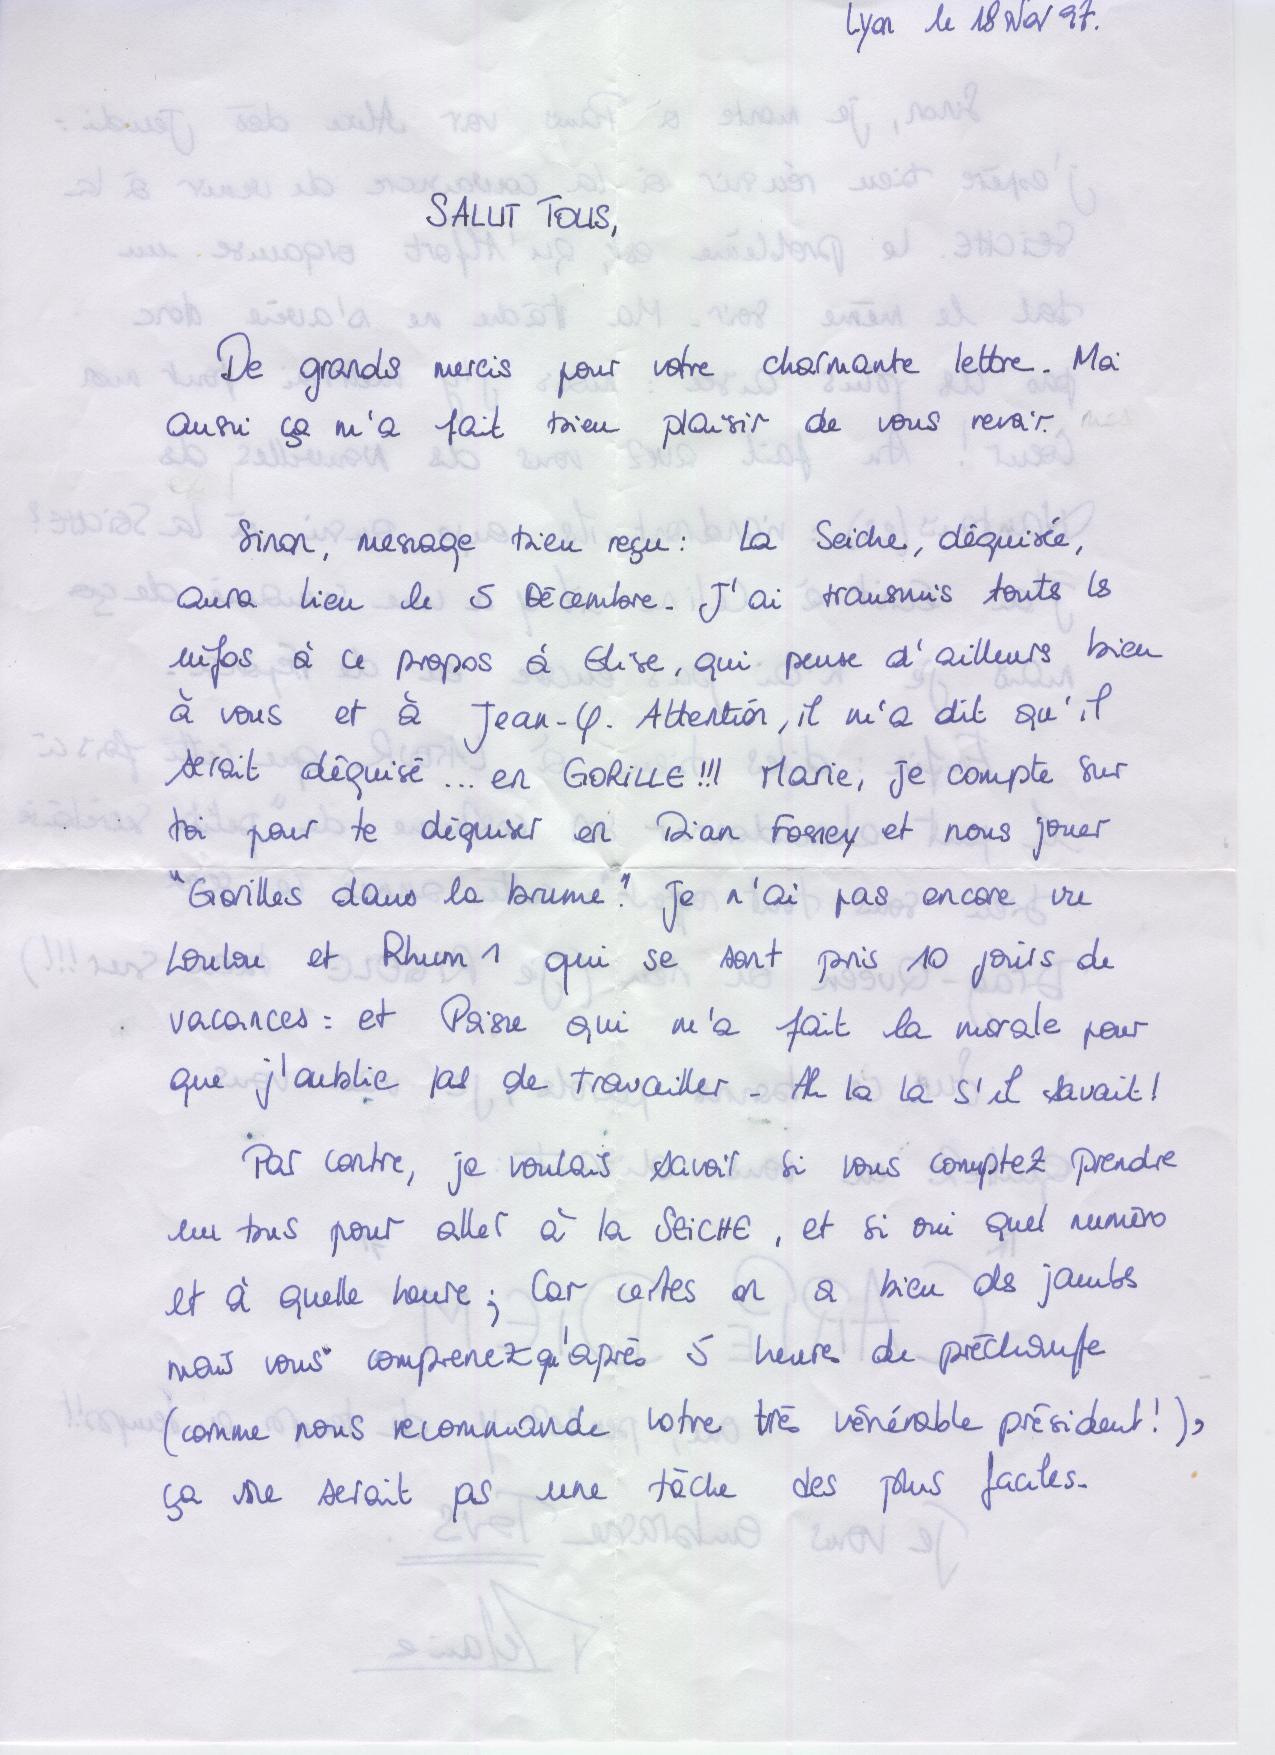 Lyon le 18 Nov 97.
SALUT TOUS,
De grands mercis pour votre charmante lettre. Moi
aussi ça m'a fait bien plaisir de vous revoir.
Sinon, message bien reçu : La Seiche, déguisée,
aura lieu le 5 Décembre. J'ai transmis touts ls
infos à ce propos à Elise, qui pense d'ailleurs bien
à vous et à Jean-φ. Attention, il m'a dit qu'il
serait déguisé ... en GORILLE !!! Marie, je compte sur
toi pour te déguiser en Dian Fossey et nous jouer
"Gorilles dans la brume". Je n'ai pas encore vu
Loulou et Rhum 1 qui se sont pris 10 jours de
vacances : et qui m'a fait la morale pour
que j'oublie pas de travailler - Ah la la s'il savait !
Par contre, je voulais savoir si vous comptez prendre
un bus pour aller à la SEICHE, et si oui quel numéro
et à quelle heure ; Car certes on a bien ds jambs
mais vous comprenez qu'après 5 heures de préchauffe
(comme nous recommande votre très vénérable président !),
ça me serait pas une tâche des plus faciles.